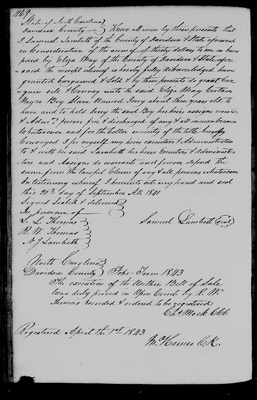 State of North Carolina
Davidson County Know all men by these presents that
I Samuel Lambeth of the County of Davidson & State aforesaid
in Consideration of the sum of dollars to me in hand
paid by Eliza May of the County of Davidson & State afore
said the receipt whereof is hereby fully acknowledged have
granted bargained & Sold & by these presents do grant bar
gain sell & Convey unto the said Eliza May Certain
Negro Boy Slave Named about ten years old to
have and to hold Unto the said
& Adm free & discharged of any & all incumbrances
Whatsoever and for the better security of the title hereby
Conveyed I for myself my heirs executors & Administrators
to & with the said heirs Executors & Administra
tors and Assigns do warrant and forever defend the
same from the lawful Claim of any & all persons whatsoever
In testimony whereof I hereunto set my hand and seal
this day of September AD 1841
Signed Sealed & delivered
In presence of
L. L. Thomas Samuel Lambeth (seal)
R. W. Thomas
Lambeth
North Carolina
Davidson County Feb Term 1843
The execution of the within Bill of Sale
was duly proved in Open Court by R. W.
Thomas recorded & ordered to be registered
Ch Mock Clk
Registered April the 1st 1843